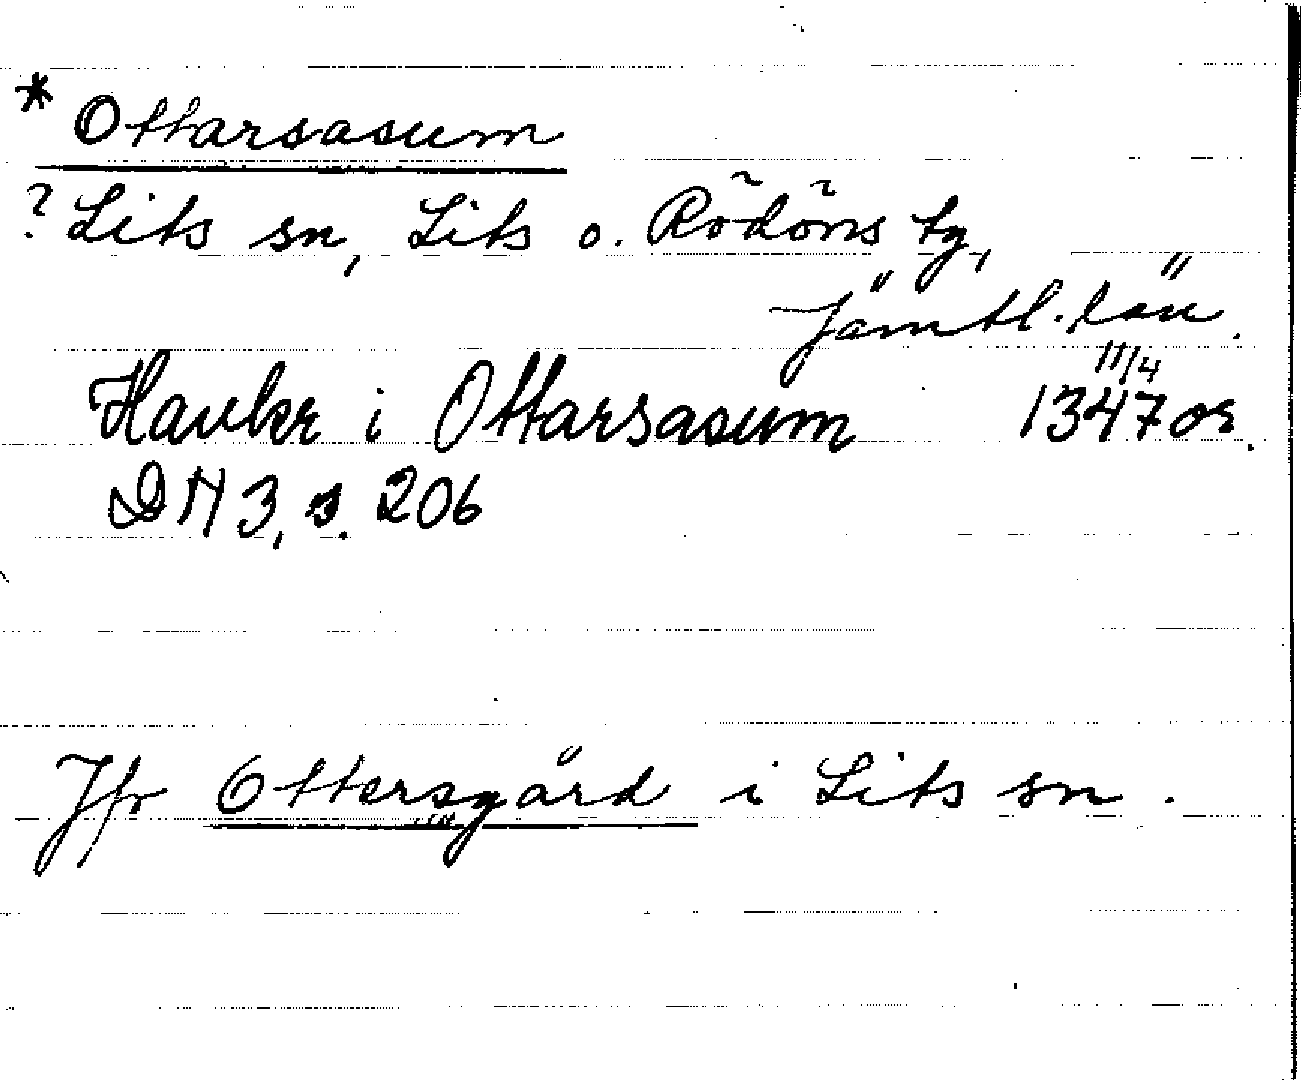 * Ottarsasum
? Lits sn, Lits o. Rödöns tg,
Jämtl. län.
Haukr i Ottarsasum 11/4 1347 or.
DN 3, s. 206
Jfr Ottersgård i Lits sn.